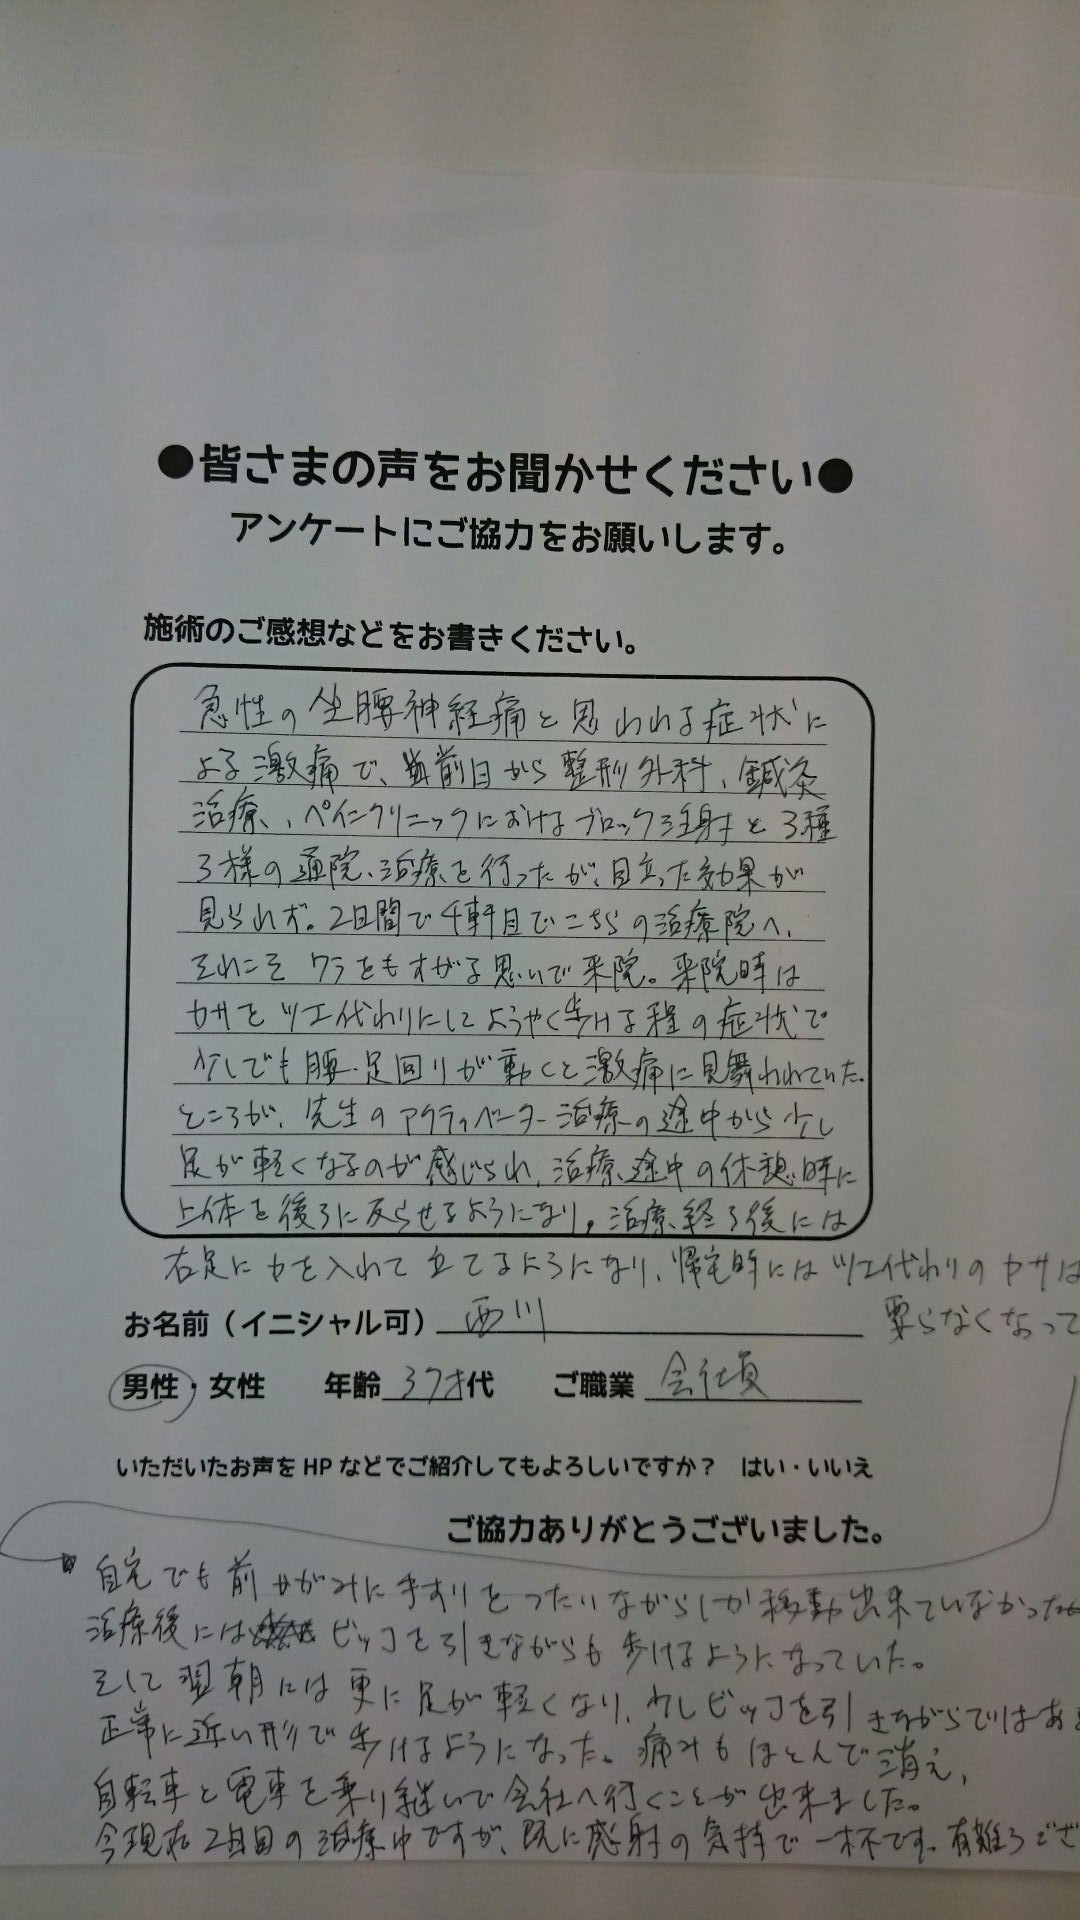 ●皆さまの声をお聞かせください●
アンケートにご協力をお願いします。
施術のご感想などをお書きください。
急性の坐腰神経痛と思われる症状に
よる激痛で、前日から整形外科、鍼灸
治療、ペインクリニックにおけるブロック注射と3種
3様の通院、治療を行ったが、目立った効果が
見られず。2日間で4軒目でこちらの治療院へ、
それこそワラをもすがる思いで来院。来院時は
カサをツエ代わりにしてようやく歩ける程の症状で
少しでも腰・足回りが動くと激痛に見舞われていた。
ところが、先生のアクティベーター治療の途中から少し
足が軽くなるのが感じられ、治療途中の休憩時に
上体を後ろに反らせるようになり、治療終了後には
右足に力を入れて立てるようになり、帰宅時にはツエ代わりのカサは
要らなくなって
お名前（イニシャル可） 西川
男性・女性 年齢 37才代 ご職業 会社員
いただいたお声をHPなどでご紹介してもよろしいですか？ はい・いいえ
ご協力ありがとうございました。
自宅でも前かがみに手すりをつたいながらしか移動出来ていなかったが
治療後には ビッコを引きながらも歩けるようになっていた。
そして翌朝には更に足が軽くなり、少しビッコを引きながらではある
正常に近い形で歩けるようになった。痛みもほとんで消え、
自転車と電車を乗り継いで会社へ行くことが出来ました。
今現在2日目の治療中ですが、既に感射の気持で一杯です。有難うござ